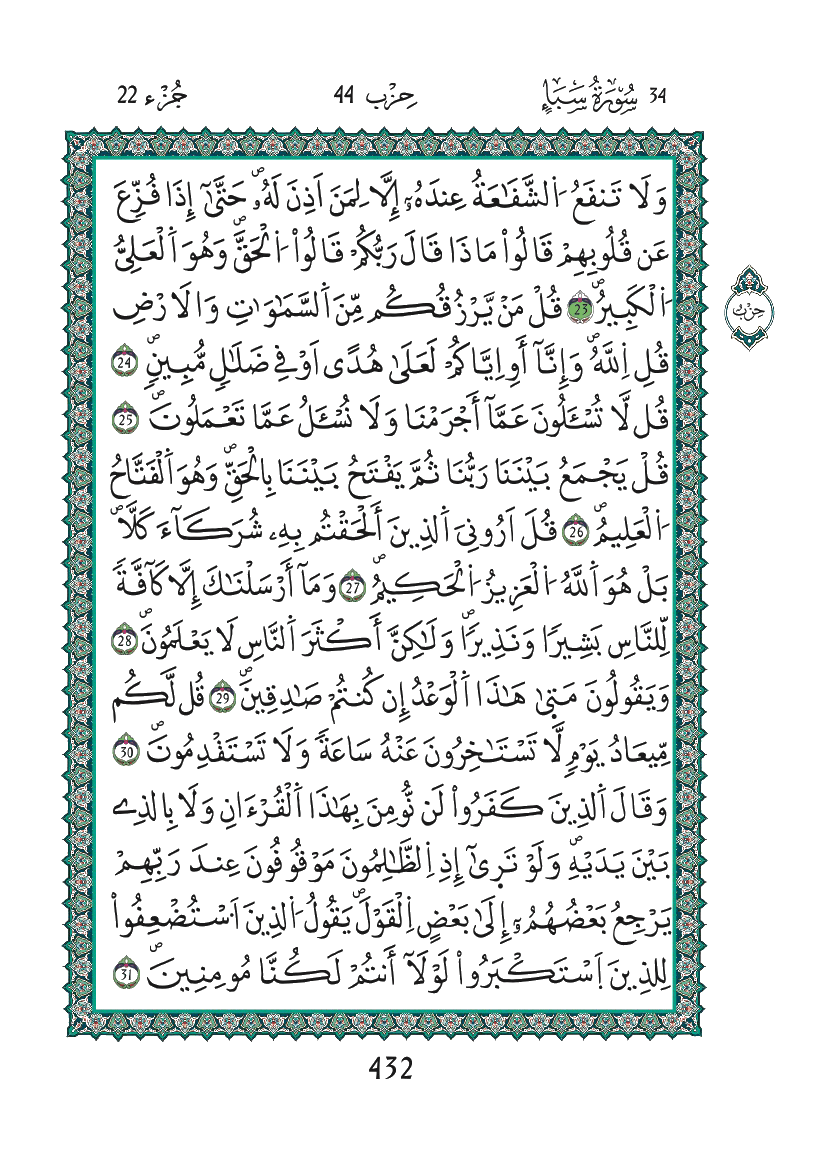 34 سُورَةُ سَبَإٍ حِزْب 44 جُزْء 22
وَلَا تَنفَعُ اُ۬لشَّفَٰعَةُ عِندَهُۥٓ إِلَّا لِمَنَ اَذِنَ لَهُۥۖ حَتَّىٰٓ إِذَا فُزِّعَ
عَن قُلُوبِهِمْ قَالُواْ مَاذَا قَالَ رَبُّكُمْ قَالُواْ اُ۬لْحَقَّۖ وَهُوَ اَ۬لْعَلِيُّ
اُ۬لْكَبِيرُۖ 23 قُلْ مَنْ يَّرْزُقُكُم مِّنَ اَ۬لسَّمَٰوَٰتِ وَالَارْضِ
حِزْب
قُلِ اِ۬للَّهُۖ وَإِنَّآ أَوِ اِيَّاكُمْ لَعَلَىٰ هُدًى اَوْ فِے ضَلَٰلٍ مُّبِينٍۖ 24
قُل لَّا تُسْـَٔلُونَ عَمَّآ أَجْرَمْنَا وَلَا نُسْـَٔلُ عَمَّا تَعْمَلُونَۖ 25
قُلْ يَجْمَعُ بَيْنَنَا رَبُّنَا ثُمَّ يَفْتَحُ بَيْنَنَا بِالْحَقِّۖ وَهُوَ اَ۬لْفَتَّاحُ
اُ۬لْعَلِيمُۖ 26 قُلَ اَرُونِيَ اَ۬لذِينَ أَلْحَقْتُم بِهِۦ شُرَكَآءَ كَلَّاۖ
بَلْ هُوَ اَ۬للَّهُ اُ۬لْعَزِيزُ اُ۬لْحَكِيمُۖ 27 وَمَآ أَرْسَلْنَٰكَ إِلَّا كَآفَّةً
لِّلنَّاسِ بَشِيرًا وَنَذِيرًاۖ وَلَٰكِنَّ أَكْثَرَ اَ۬لنَّاسِ لَا يَعْلَمُونَۖ 28
وَيَقُولُونَ مَتَىٰ هَٰذَا اَ۬لْوَعْدُ إِن كُنتُمْ صَٰدِقِينَۖ 29 قُل لَّكُم
مِّيعَادُ يَوْمٍ لَّا تَسْتَٰخِرُونَ عَنْهُ سَاعَةً وَلَا تَسْتَقْدِمُونَۖ 30
وَقَالَ اَ۬لذِينَ كَفَرُواْ لَن نُّومِنَ بِهَٰذَا اَ۬لْقُرْءَانِ وَلَا بِالذِے
بَيْنَ يَدَيْهِۖ وَلَوْ تَرٜىٰٓ إِذِ اِ۬لظَّٰلِمُونَ مَوْقُوفُونَ عِندَ رَبِّهِمْ
يَرْجِعُ بَعْضُهُمُۥٓ إِلَىٰ بَعْضٍ اِ۬لْقَوْلَۖ يَقُولُ اُ۬لذِينَ اَ۟سْتُضْعِفُواْ
لِلذِينَ اَ۪سْتَكْبَرُواْ لَوْلَآ أَنتُمْ لَكُنَّا مُومِنِينَۖ 31
432